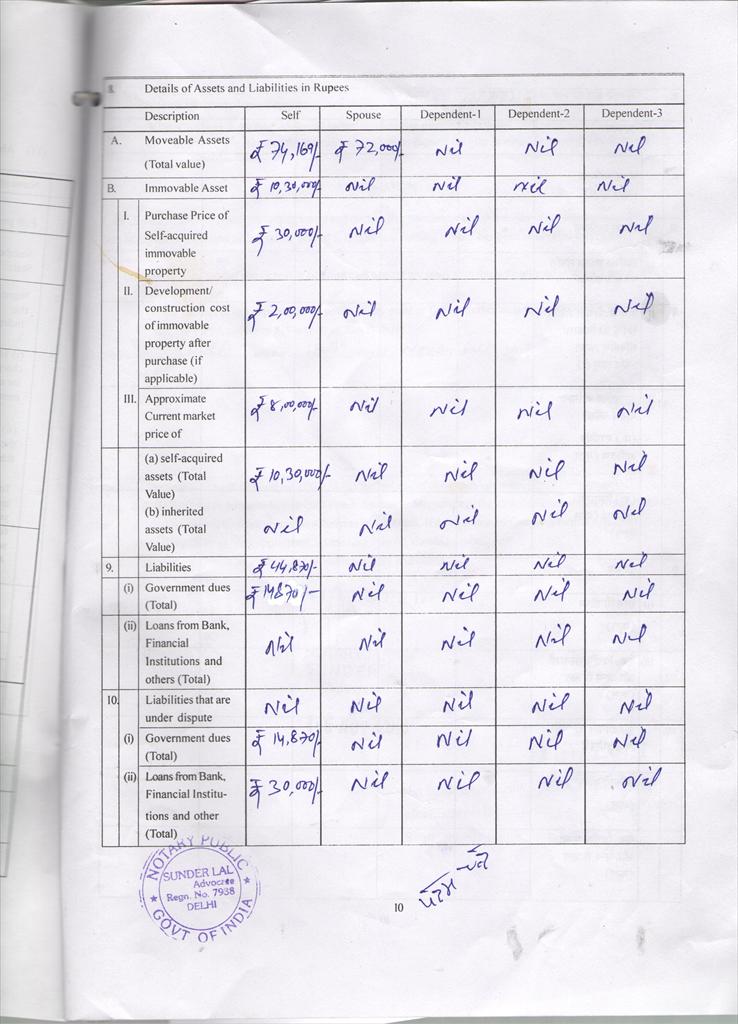 8. Details of Assets and Liabilities in Rupees
Description Self Spouse Dependent-1 Dependent-2 Dependent-3
A. Moveable Assets (Total value) ₹ 74,169/- ₹ 72,000/- Nil Nil Nil
B. Immovable Asset ₹ 10,30,000/- Nil Nil Nil Nil
I. Purchase Price of
Self-acquired ₹ 30,000/- Nil Nil Nil Nil
immovable
property
II. Development/
construction cost
of immovable ₹ 2,00,000/- Nil Nil Nil Nil
property after
purchase (if
applicable)
III. Approximate ₹ 8,00,000/- Nil Nil Nil Nil
Current market
price of
(a) self-acquired
assets (Total ₹ 10,30,000/- Nil Nil Nil Nil
Value)
(b) inherited
assets (Total Nil Nil Nil Nil Nil
Value)
9. Liabilities ₹ 44,870/- Nil Nil Nil Nil
(i) Government dues ₹ 14870/- Nil Nil Nil Nil
(Total)
(ii) Loans from Bank,
Financial Nil Nil Nil Nil Nil
Institutions and
others (Total)
10. Liabilities that are Nil Nil Nil Nil Nil
under dispute
(i) Government dues ₹ 14,870/- Nil Nil Nil Nil
(Total)
(ii) Loans from Bank, ₹ 30,000/- Nil Nil Nil Nil
Financial Institu-
tions and other
(Total)
NOTARY PUBLIC
SUNDER LAL
Advocate
Regn. No. 7938
DELHI
GOVT OF INDIA
10